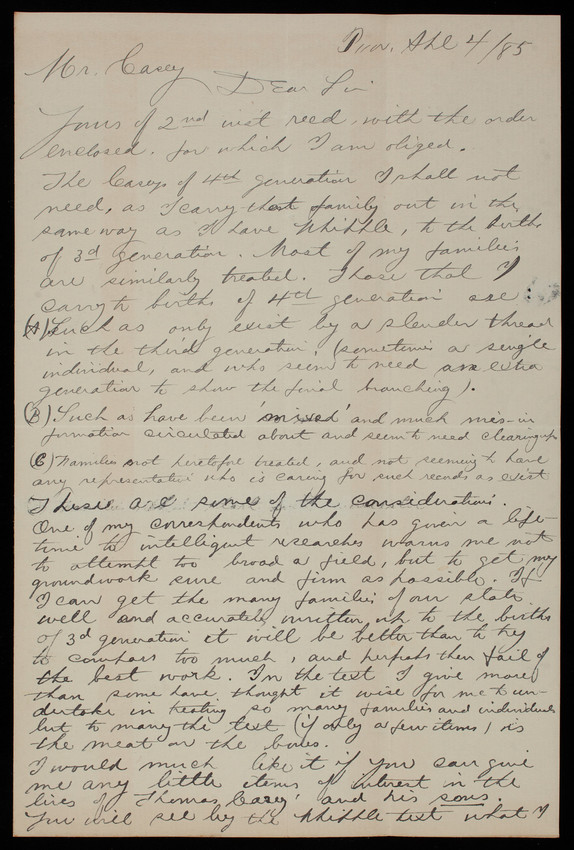 Prov. Apl 4/85
Mr. Casey
Dear Sir
Yours of 2nd inst recd. with the order
enclosed. for which I am obliged.
The Caseys of 4th generation I shall not
need, as I carry that family out in the
same way as I have Whipple, to the births
of 3d generation. Most of my families
are similarly treated. Those that I
carry to births of 4th generation are:
(A) Such as only exist by a slender thread
in the third generation, (sometimes a single
individual, and who seem to need an extra
generation to show the final branching).
(B) Such as have been 'mixed' and much mis-in
formation circulated about and seem to need clearing up
(C) Families not heretofore treated, and not seeming to have
any representative who is caring for such records as exist
These are some of the considerations.
One of my correspondents who has given a life-
time to intelligent researches warns me not
to attempt too broad a field, but to get my
groundwork sure and firm as possible. If
I can get the many families of our state
well and accurately written up to the births
of 3d generation it will be better than to try
to compass too much, and perhaps then fail of
the best work. In the text I give more
than some have thought it wise for me to un-
dertake in treating so many families and individuals
but to many the text (if only a few items) is
the meat on the bones.
I would much like it if you can give
me any little items of interest in the
lives of Thomas Casey and his sons.
You will see by the Whipple text what I